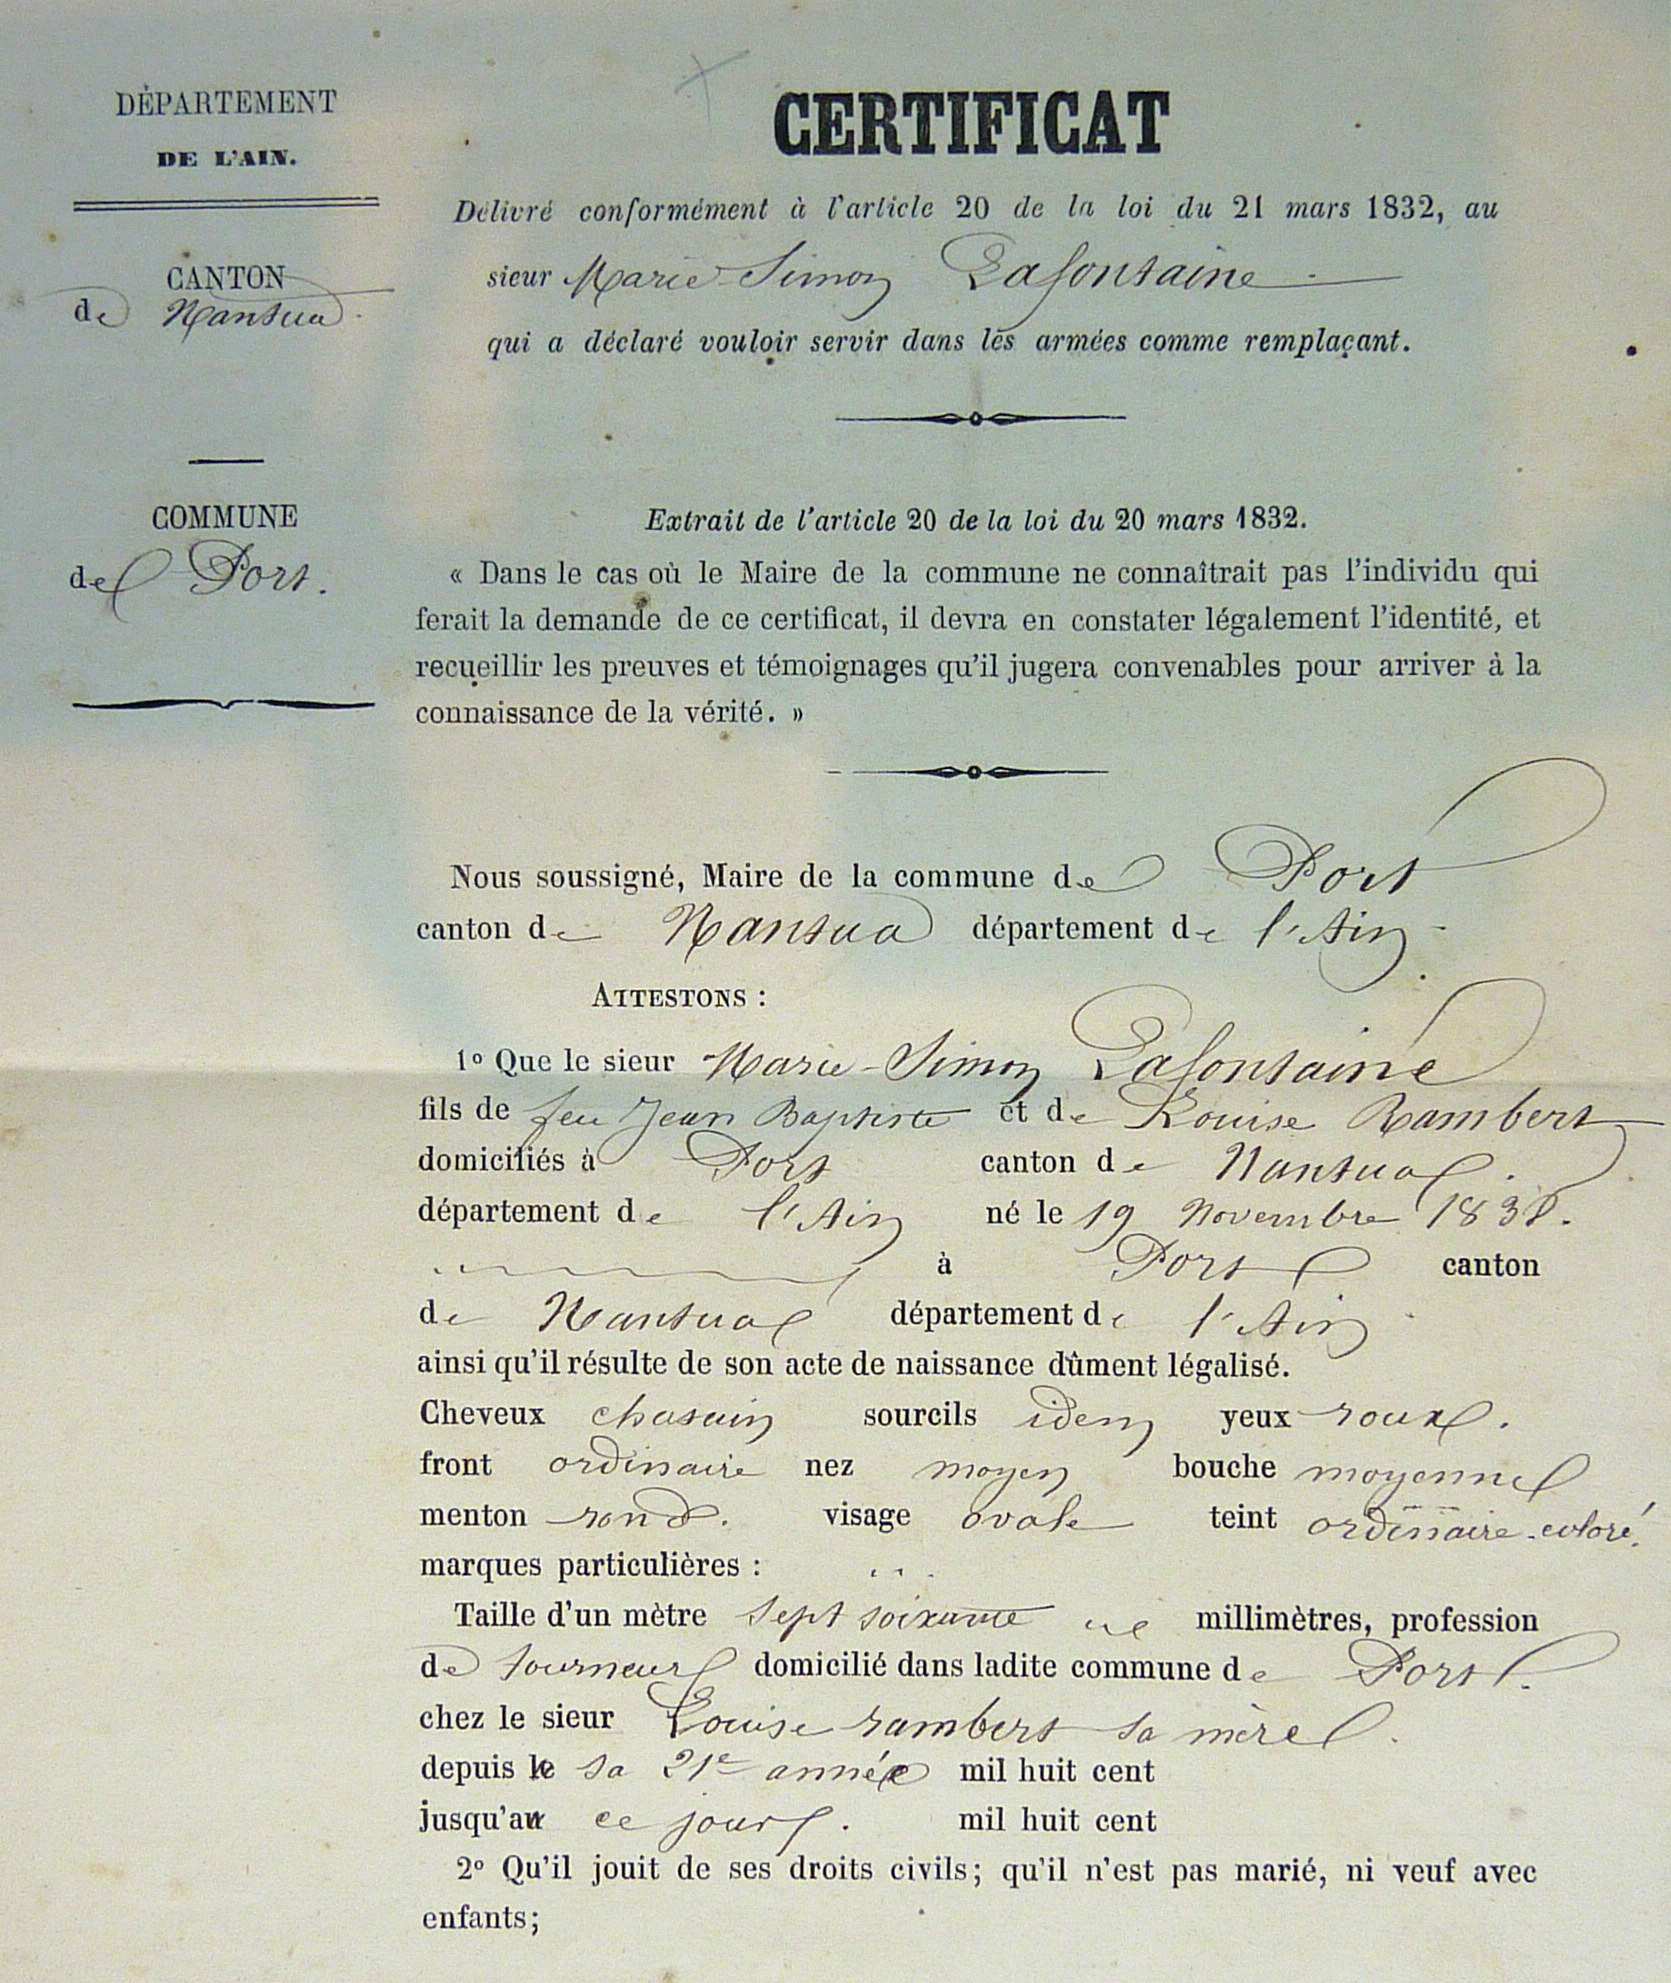 DÉPARTEMENT
DE L'AIN.
CANTON
de Nantua
COMMUNE
de Port.
CERTIFICAT
Délivré conformément à l'article 20 de la loi du 21 mars 1832, au
sieur Marie Simon Lafontaine
qui a déclaré vouloir servir dans les armées comme remplaçant.
Extrait de l'article 20 de la loi du 20 mars 1832.
« Dans le cas où le Maire de la commune ne connaîtrait pas l'individu qui
ferait la demande de ce certificat, il devra en constater légalement l'identité, et
recueillir les preuves et témoignages qu'il jugera convenables pour arriver à la
connaissance de la vérité. »
Nous soussigné, Maire de la commune de Port
canton de Nantua département de l'Ain
ATTESTONS :
1º Que le sieur Marie-Simon Lafontaine
fils de feu Jean Baptiste et de Louise Rambert
domiciliés à Port canton de Nantua.
département de l'Ain né le 19 Novembre 1838.
à Port canton
de Nantua département de l'Ain
ainsi qu'il résulte de son acte de naissance dûment légalisé.
Cheveux chatain sourcils idem yeux roux.
front ordinaire nez moyen bouche moyenne
menton rond. visage ovale teint ordinaire-coloré.
marques particulières :
Taille d'un mètre sept soixante millimètres, profession
de tourneur domicilié dans ladite commune de Port.
chez le sieur Louise rambert sa mère.
depuis le sa 21e année mil huit cent
jusqu'au ce jour. mil huit cent
2º Qu'il jouit de ses droits civils; qu'il n'est pas marié, ni veuf avec
enfants;